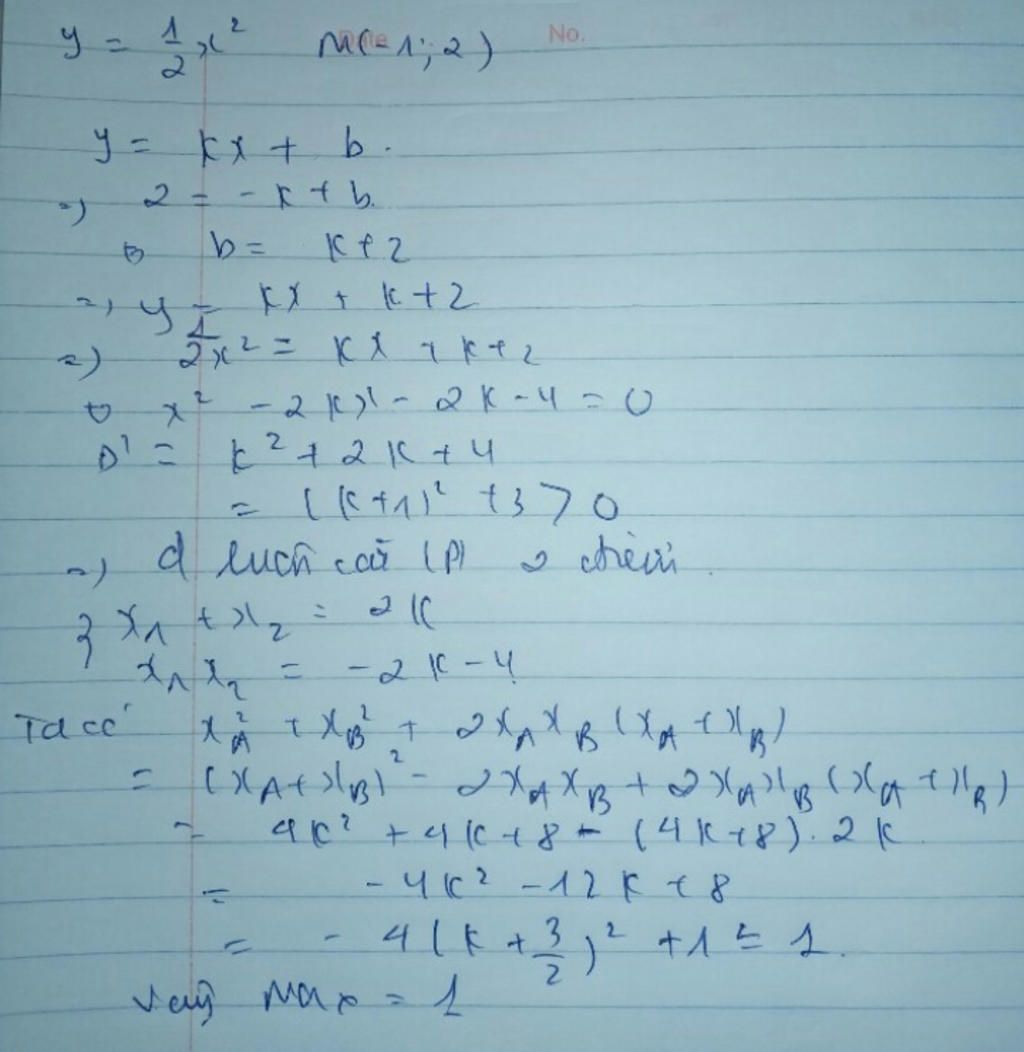 y = 1/2 x² M(-1; 2)
Date No.
y = kx + b.
=) 2 = -k + b.
⇔ b = k + 2
=) y = kx + k + 2
=) 1/2 x² = kx + k + 2
⇔ x² - 2kx - 2k - 4 = 0
Δ' = k² + 2k + 4
= (k+1)² + 3 > 0
=) d luôn cắt (P) 2 điểm.
{ x₁ + x₂ = 2k
x₁x₂ = -2k - 4
Ta có x_A² + x_B² + 2x_A x_B (x_A + x_B)
= (x_A + x_B)² - 2x_A x_B + 2x_A x_B (x_A + x_B)
= 4k² + 4k + 8 - (4k + 8). 2k
= -4k² - 12k + 8
= - 4(k + 3/2)² + 1 ≤ 1.
Vậy max = 1